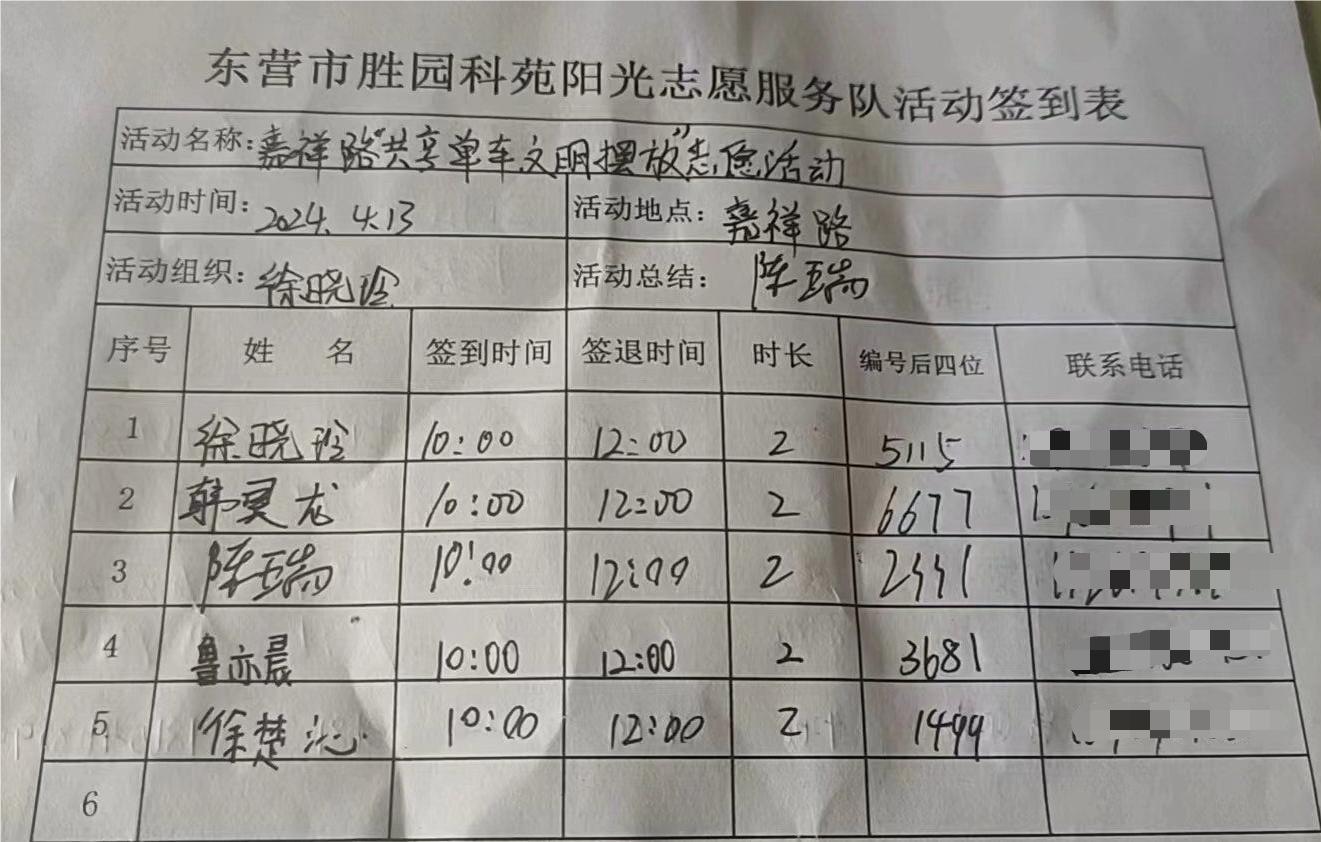 东营市胜园科苑阳光志愿服务队活动签到表
活动名称:嘉祥路“共享单车文明摆放”志愿活动
活动时间: 2024. 4.13 活动地点: 嘉祥路
活动组织: 徐晓玲 活动总结: 陈玉瑞
序号 姓 名 签到时间 签退时间 时长 编号后四位 联系电话
1 徐晓玲 10:00 12:00 2 5115
2 韩昊龙 10:00 12:00 2 6677
3 陈玉瑞 10:00 12:00 2 2441
4 鲁亦晨 10:00 12:00 2 3681
5 徐楚沁 10:00 12:00 2 1499
6